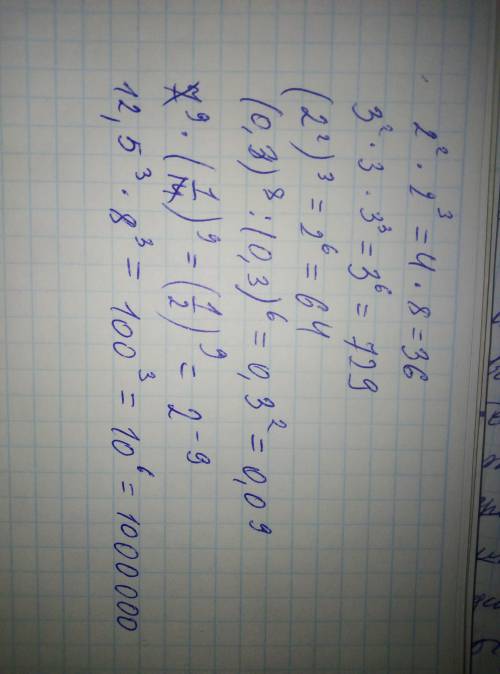 2² · 2³ = 4 · 8 = 36
3² · 3 · 3³ = 3⁶ = 729
(2²)³ = 2⁶ = 64
(0,3)⁸ : (0,3)⁶ = 0,3² = 0,09
7⁹ · (1/14)⁹ = (1/2)⁹ = 2⁻⁹
12,5³ · 8³ = 100³ = 10⁶ = 1000000